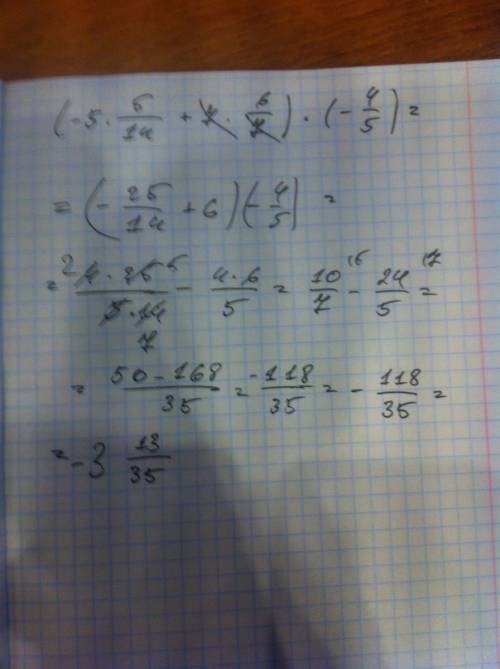 (-5 · 5/14 + 7 · 6/7) · (-4/5) =
= (-25/14 + 6)(-4/5) =
= 2 4 · 25 5 / 5 · 14 7 - 4 · 6/5 = 10/7 (5 - 24/5 (7 =
= 50 - 168/35 = -118/35 = - 118/35 =
= -3 13/35